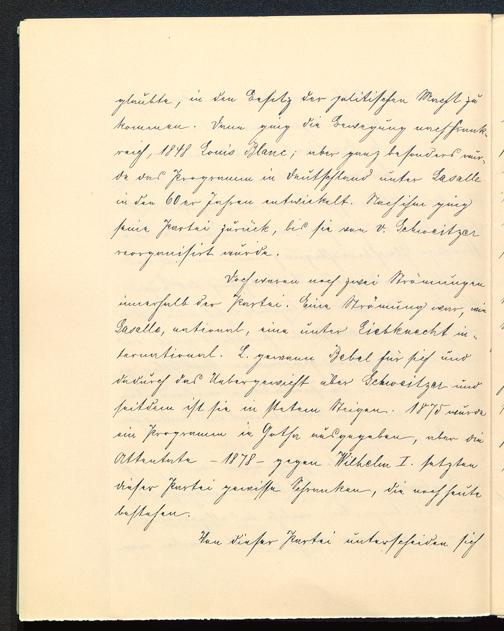 glaubte, in den Besitz der politischen Macht zu
kommen. Dann ging die Bewegung nach Frank-
reich, 1848 Louis Blanc; aber ganz besonders wur-
de das Programm in Deutschland unter Lasalle
in den 60er Jahren entwickelt. Nach ihm ging
seine Partei zurück, bis sie von v. Schweitzer
reorganisirt wurde.
Doch waren noch zwei Strömungen
innerhalb der Partei. Eine Strömung war, wie
Lasalle, national, eine unter Liebknecht in-
ternational. L. gewann Bebel für sich und
dadurch das Uebergewicht über Schweitzer und
seitdem ist sie in stetem Steigen. 1875 wurde
ein Programm in Gotha ausgegeben, aber die
Attentate - 1878 - gegen Wilhelm I. setzten
dieser Partei gewisse Schranken, die noch heute
bestehen.
Von dieser Partei unterscheiden sich